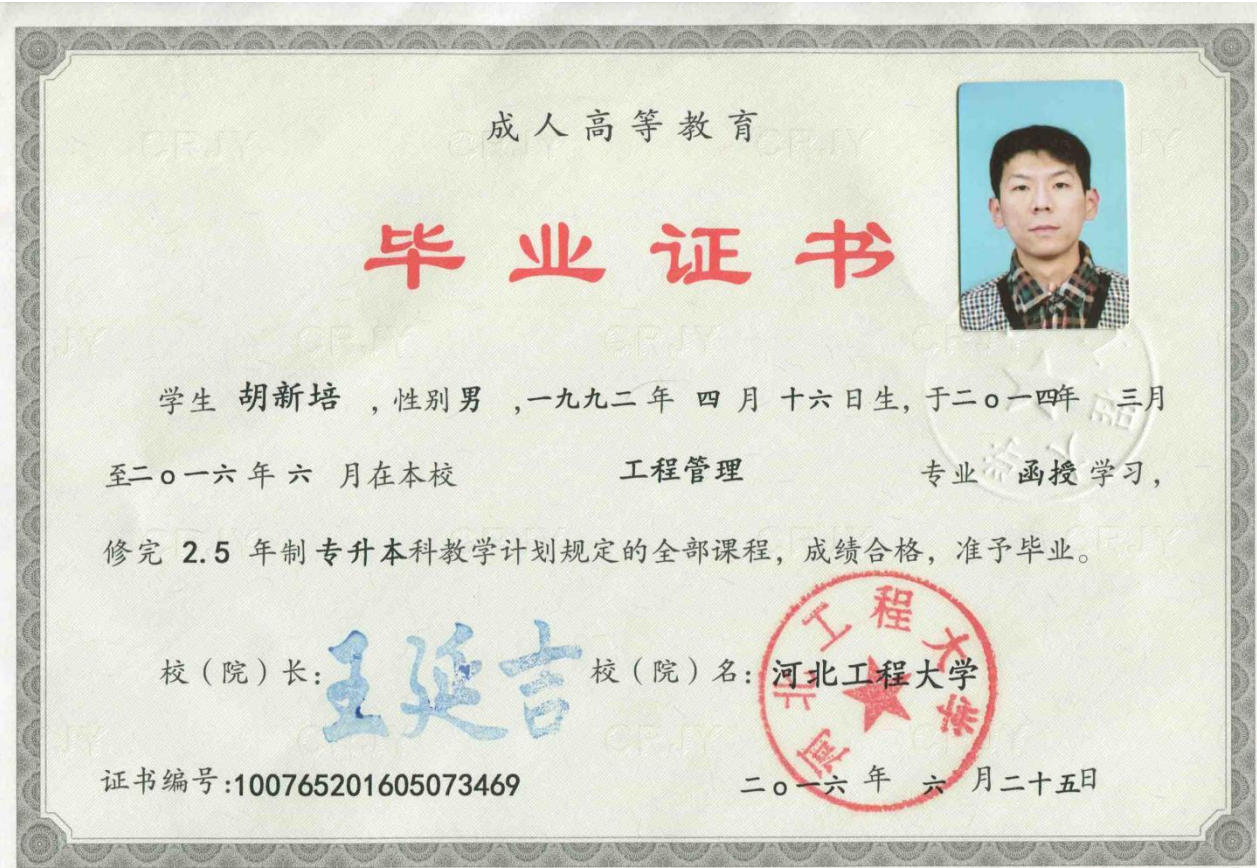 成人高等教育
毕业证书
学生 胡新培 ，性别男 ，一九九二年 四 月 十六日生，于二o一四年 三月
至二o一六年六 月在本校 工程管理 专业 函授学习，
修完 2.5 年制专升本科教学计划规定的全部课程，成绩合格，准予毕业。
校（院）长：王延吉 校（院）名：河北工程大学
河北工程大学
证书编号:100765201605073469 二o一六年 六 月二十五日
CRJY